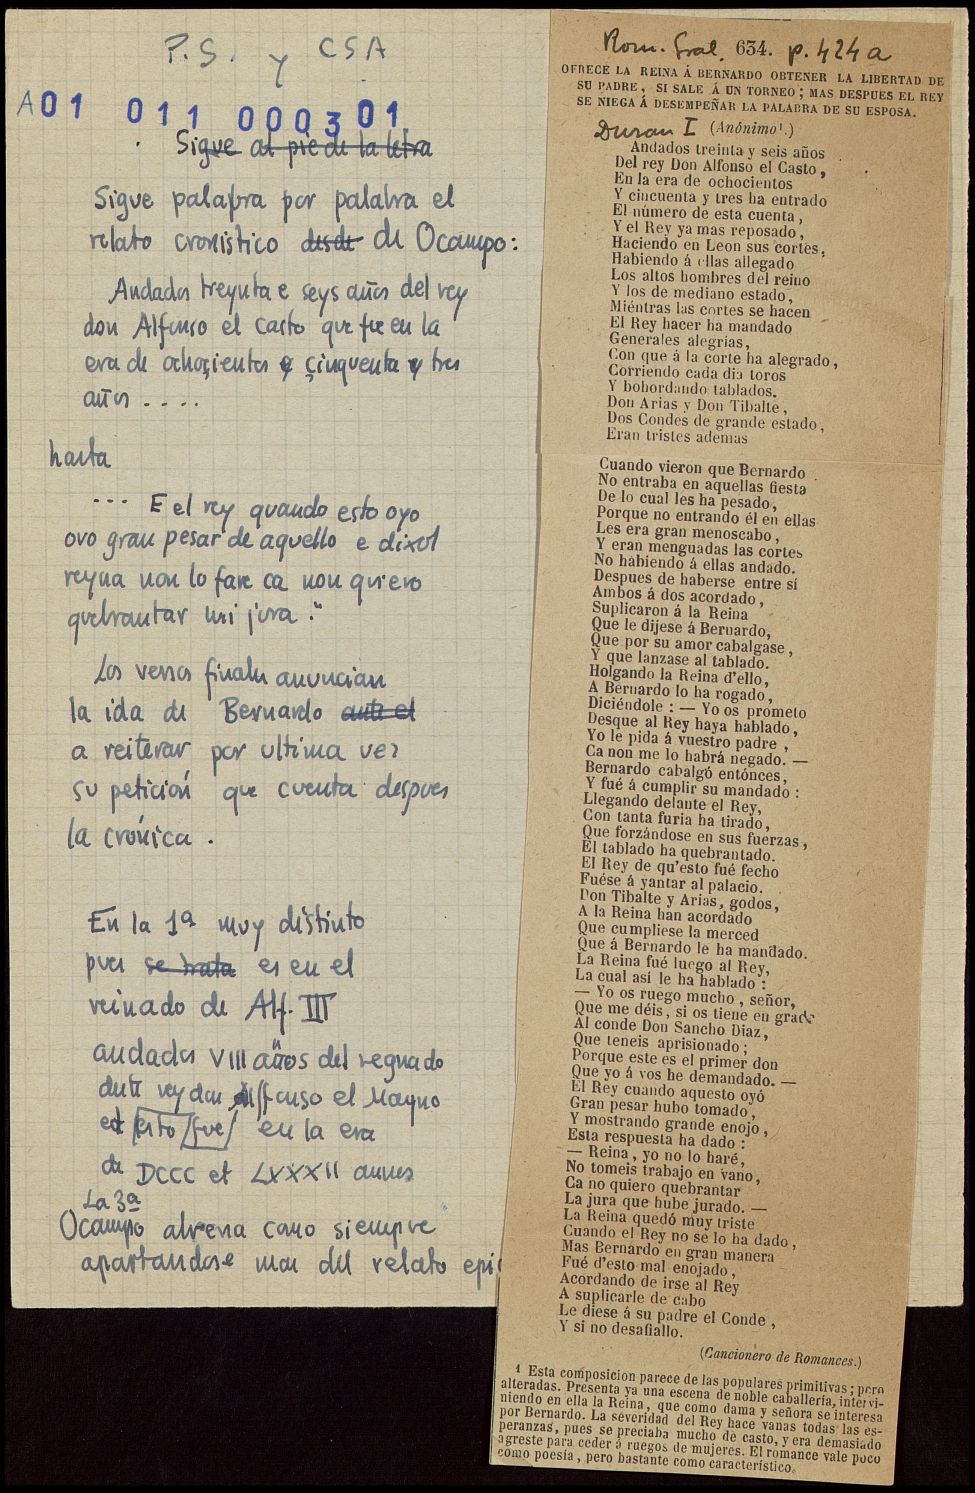 P.S. y CSA
A01 011 0003 01
Sigue al pie de la letra
Sigue palabra por palabra el
relato cronístico desde de Ocampo:
Andados treynta e seys años del rey
don Alfonso el casto que fue en la
era de ochoçientos e çinquenta y tres
años ....
hasta
--- E el rey quando esto oyo
ovo gran pesar de aquello e dixol
reyna non lo fare ca non quiero
quebrantar mi jura."
Los versos finales anuncian
la ida de Bernardo ante el
a reiterar por ultima vez
su petición que cuenta despues
la crónica.
En la 1ª muy distinto
pues se trata es en el
reinado de Alf. III
andados VIII años del regnado
deste rey don Alffonso el Magno
et esto fue en la era
de DCCC et LXXXII annos
La 3ª
Ocampo abrevia como siempre
apartandose mas del relato
Rom. Gral. 634. p. 424a
OFRECE LA REINA Á BERNARDO OBTENER LA LIBERTAD DE
SU PADRE, SI SALE Á UN TORNEO; MAS DESPUES EL REY
SE NIEGA Á DESEMPEÑAR LA PALABRA DE SU ESPOSA.
Duran I (Anónimo¹.)
Andados treinta y seis años
Del rey Don Alfonso el Casto,
En la era de ochocientos
Y cincuenta y tres ha entrado
El número de esta cuenta,
Y el Rey ya mas reposado,
Haciendo en Leon sus cortes,
Habiendo á ellas allegado
Los altos hombres del reino
Y los de mediano estado,
Miéntras las cortes se hacen
El Rey hacer ha mandado
Generales alegrías,
Con que á la corte ha alegrado,
Corriendo cada dia toros
Y bohordando tablados.
Don Arias y Don Tibalte,
Dos Condes de grande estado,
Eran tristes ademas
Cuando vieron que Bernardo
No entraba en aquellas fiesta
De lo cual les ha pesado,
Porque no entrando él en ellas
Les era gran menoscabo,
Y eran menguadas las cortes
No habiendo á ellas andado.
Despues de haberse entre sí
Ambos á dos acordado,
Suplicaron á la Reina
Que le dijese á Bernardo,
Que por su amor cabalgase,
Y que lanzase al tablado.
Holgando la Reina d'ello,
A Bernardo lo ha rogado,
Diciéndole: — Yo os prometo
Desque al Rey haya hablado,
Yo le pida á vuestro padre,
Ca non me lo habrá negado. —
Bernardo cabalgó entónces,
Y fué á cumplir su mandado:
Llegando delante el Rey,
Con tanta furia ha tirado,
Que forzándose en sus fuerzas,
El tablado ha quebrantado.
El Rey de qu'esto fué fecho
Fuése á yantar al palacio.
Don Tibalte y Arias, godos,
A la Reina han acordado
Que cumpliese la merced
Que á Bernardo le ha mandado.
La Reina fué luego al Rey,
La cual así le ha hablado:
— Yo os ruego mucho, señor,
Que me déis, si os tiene en grado
Al conde Don Sancho Diaz,
Que teneis aprisionado;
Porque este es el primer don
Que yo á vos he demandado. —
El Rey cuando aquesto oyó
Gran pesar hubo tomado,
Y mostrando grande enojo,
Esta respuesta ha dado:
— Reina, yo no lo haré,
No tomeis trabajo en vano,
Ca no quiero quebrantar
La jura que hube jurado. —
La Reina quedó muy triste
Cuando el Rey no se lo ha dado,
Mas Bernardo en gran manera
Fué d'esto mal enojado,
Acordando de irse al Rey
A suplicarle de cabo
Le diese á su padre el Conde,
Y si no desafiallo.
(Cancionero de Romances.)
1 Esta composicion parece de las populares primitivas; pero
alteradas. Presenta ya una escena de noble caballería, intervi-
niendo en ella la Reina, que como dama y señora se interesa
por Bernardo. La severidad del Rey hace vanas todas las es-
peranzas, pues se preciaba mucho de casto, y era demasiado
agreste para ceder á ruegos de mujeres. El romance vale poco
como poesía, pero bastante como característico.